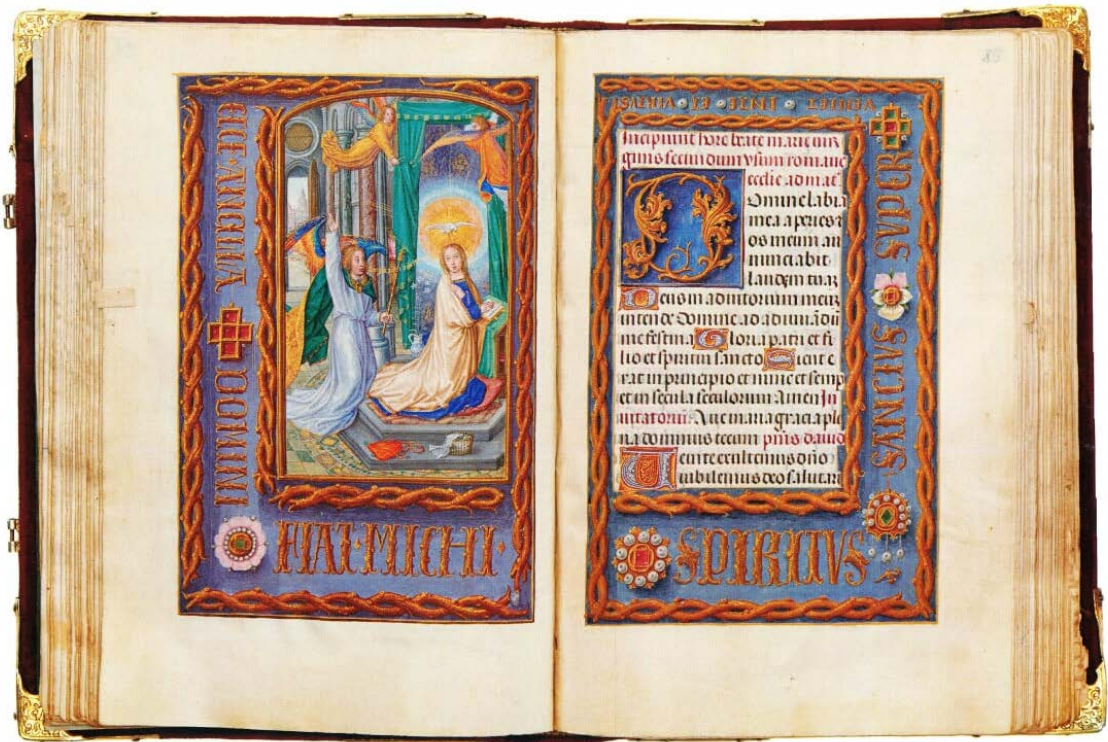 ANCILLA · DOMINI
FIAT · MICHI ·
SPIRITVS
SANCTVS SVPER
VENIET · INTE · ET · VIRTVS
Incipiunt hore beate marie uir
ginis secundum vsum romane
ecclie ad mat
Domine labia
mea aperies et
os meum an
nunciabit
laudem tuaz
Deus in adiutorium meuz
intende Domine ad adiuuādū
me festina Gloria patri et fi
lio et spiritui sancto Sicut e
rat in principio et nunc et semp
et in secula seculorum Amen In
uitatoriū Aue maria gracia ple
na dominus tecum pm̄s dauid
Uenite exultemus dño
iubilemus deo salutari